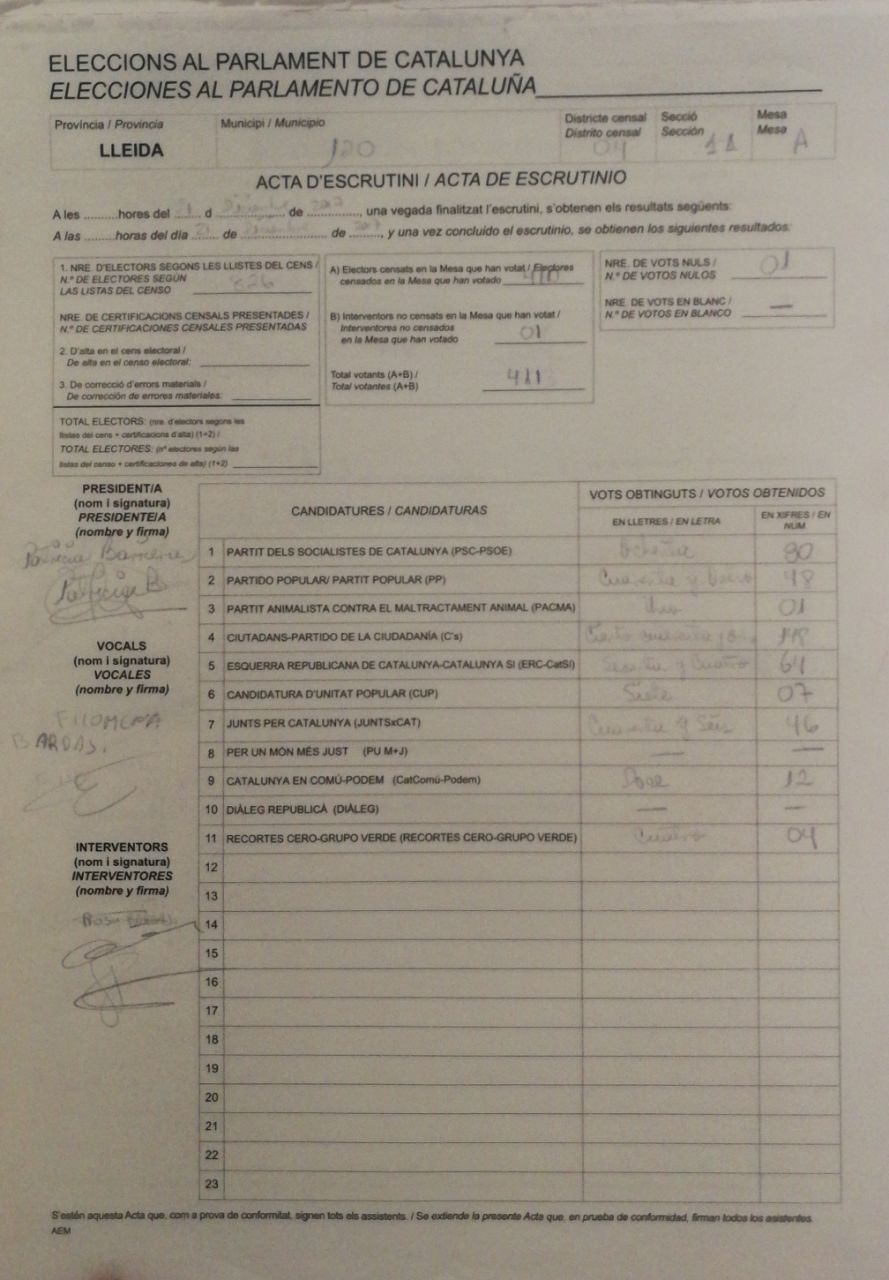 ELECCIONS AL PARLAMENT DE CATALUNYA
ELECCIONES AL PARLAMENTO DE CATALUÑA
Província / Provincia
LLEIDA
Municipi / Municipio
120
Districte censal
Distrito censal
04
Secció
Sección
11
Mesa
Mesa
A
ACTA D'ESCRUTINI / ACTA DE ESCRUTINIO
A les ..........hores del ........ d ........................ de ..............., una vegada finalitzat l'escrutini, s'obtenen els resultats següents:
A las ..........horas del día ........ de ........................ de ........., y una vez concluido el escrutinio, se obtienen los siguientes resultados:
1. NRE. D'ELECTORS SEGONS LES LLISTES DEL CENS /
N.º DE ELECTORES SEGÚN
LAS LISTAS DEL CENSO 826
NRE. DE CERTIFICACIONS CENSALS PRESENTADES /
N.º DE CERTIFICACIONES CENSALES PRESENTADAS
2. D'alta en el cens electoral /
De alta en el censo electoral:
3. De correcció d'errors materials /
De corrección de errores materiales:
TOTAL ELECTORS: (nre. d'electors segons les
llistes del cens + certificacions d'alta) (1+2) /
TOTAL ELECTORES: (nº electores según las
listas del censo + certificaciones de alta) (1+2)
A) Electors censats en la Mesa que han votat / Electores
censados en la Mesa que han votado 410
B) Interventors no censats en la Mesa que han votat /
Interventores no censados
en la Mesa que han votado 01
Total votants (A+B) /
Total votantes (A+B) 411
NRE. DE VOTS NULS /
N.º DE VOTOS NULOS 01
NRE. DE VOTS EN BLANC /
N.º DE VOTOS EN BLANCO —
PRESIDENT/A
(nom i signatura)
PRESIDENTE/A
(nombre y firma)
VOCALS
(nom i signatura)
VOCALES
(nombre y firma)
FILOMENA
BARDAJI
INTERVENTORS
(nom i signatura)
INTERVENTORES
(nombre y firma)
CANDIDATURES / CANDIDATURAS
VOTS OBTINGUTS / VOTOS OBTENIDOS
EN LLETRES / EN LETRA
EN XIFRES / EN NUM
1 PARTIT DELS SOCIALISTES DE CATALUNYA (PSC-PSOE) Ochenta 80
2 PARTIDO POPULAR/ PARTIT POPULAR (PP) Cuarenta y 48
3 PARTIT ANIMALISTA CONTRA EL MALTRACTAMENT ANIMAL (PACMA) Uno 01
4 CIUTADANS-PARTIDO DE LA CIUDADANÍA (C's) 148
5 ESQUERRA REPUBLICANA DE CATALUNYA-CATALUNYA SI (ERC-CatSí) Sesenta y Cuatro 64
6 CANDIDATURA D'UNITAT POPULAR (CUP) Siete 07
7 JUNTS PER CATALUNYA (JUNTSxCAT) Cuarenta y Seis 46
8 PER UN MÓN MÉS JUST (PU M+J) — —
9 CATALUNYA EN COMÚ-PODEM (CatComú-Podem) Doce 12
10 DIÀLEG REPUBLICÀ (DIÀLEG) — —
11 RECORTES CERO-GRUPO VERDE (RECORTES CERO-GRUPO VERDE) Cuatro 04
12
13
14
15
16
17
18
19
20
21
22
23
S'estén aquesta Acta que, com a prova de conformitat, signen tots els assistents. / Se extiende la presente Acta que, en prueba de conformidad, firman todos los asistentes.
AEM